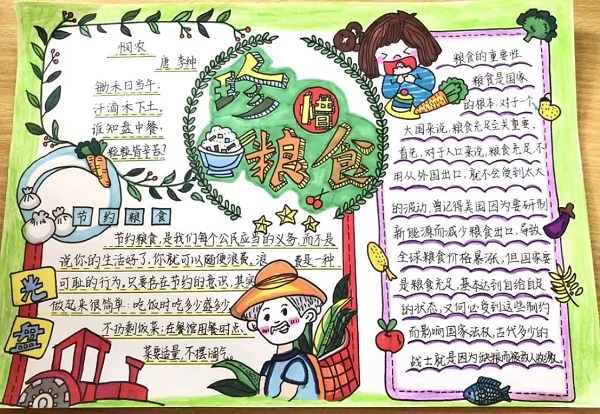 悯农
唐 李绅
锄禾日当午，
汗滴禾下土。
谁知盘中餐，
粒粒皆辛苦？
珍惜
粮食
节约粮食
节约粮食，是我们每个公民应当的义务，而不是
说你的生活好了，你就可以随便浪费。浪费是一种
可耻的行为。只要存在节约的意识，其实
做起来很简单：吃饭时吃多少盛多少，
不扔剩饭菜；在餐馆用餐时点
菜要适量，不摆阔气。
光盘
粮食的重要性
粮食是国家
的根本，对于一个
大国来说，粮食充足至关重要，
首先，对于人口来说，粮食充足不
用从外国出口，就不会受到太大
的波动，曾记得美国因为要研制
新能源而减少粮食出口，导致
全球粮食价格暴涨，但国家要
是粮食充足，基本达到自给自足
的状态，又何必受到这些制约
而影响国家法权，古代多少的
战士就是因为缺粮而被敌人